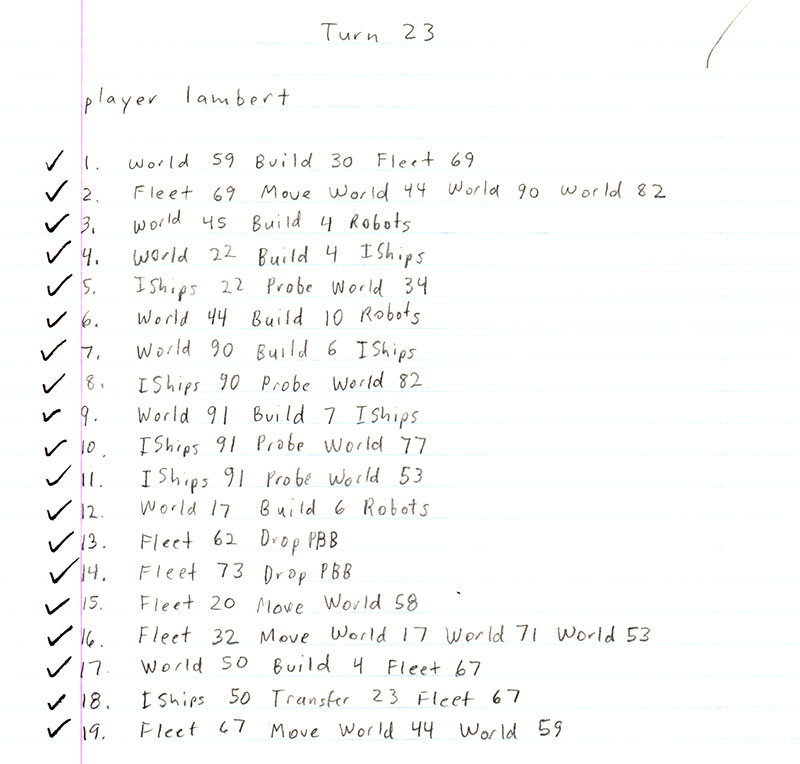 Turn 23
player lambert
✓ 1. World 59 Build 30 Fleet 69
✓ 2. Fleet 69 Move World 44 World 90 World 82
✓ 3. World 45 Build 4 Robots
✓ 4. World 22 Build 4 IShips
✓ 5. IShips 22 Probe World 34
✓ 6. World 44 Build 10 Robots
✓ 7. World 90 Build 6 IShips
✓ 8. IShips 90 Probe World 82
✓ 9. World 91 Build 7 IShips
✓ 10. IShips 91 Probe World 77
✓ 11. IShips 91 Probe World 53
✓ 12. World 17 Build 6 Robots
✓ 13. Fleet 62 Drop PBB
✓ 14. Fleet 73 Drop PBB
✓ 15. Fleet 20 Move World 58
✓ 16. Fleet 32 Move World 17 World 71 World 53
✓ 17. World 50 Build 4 Fleet 67
✓ 18. IShips 50 Transfer 23 Fleet 67
✓ 19. Fleet 67 Move World 44 World 59